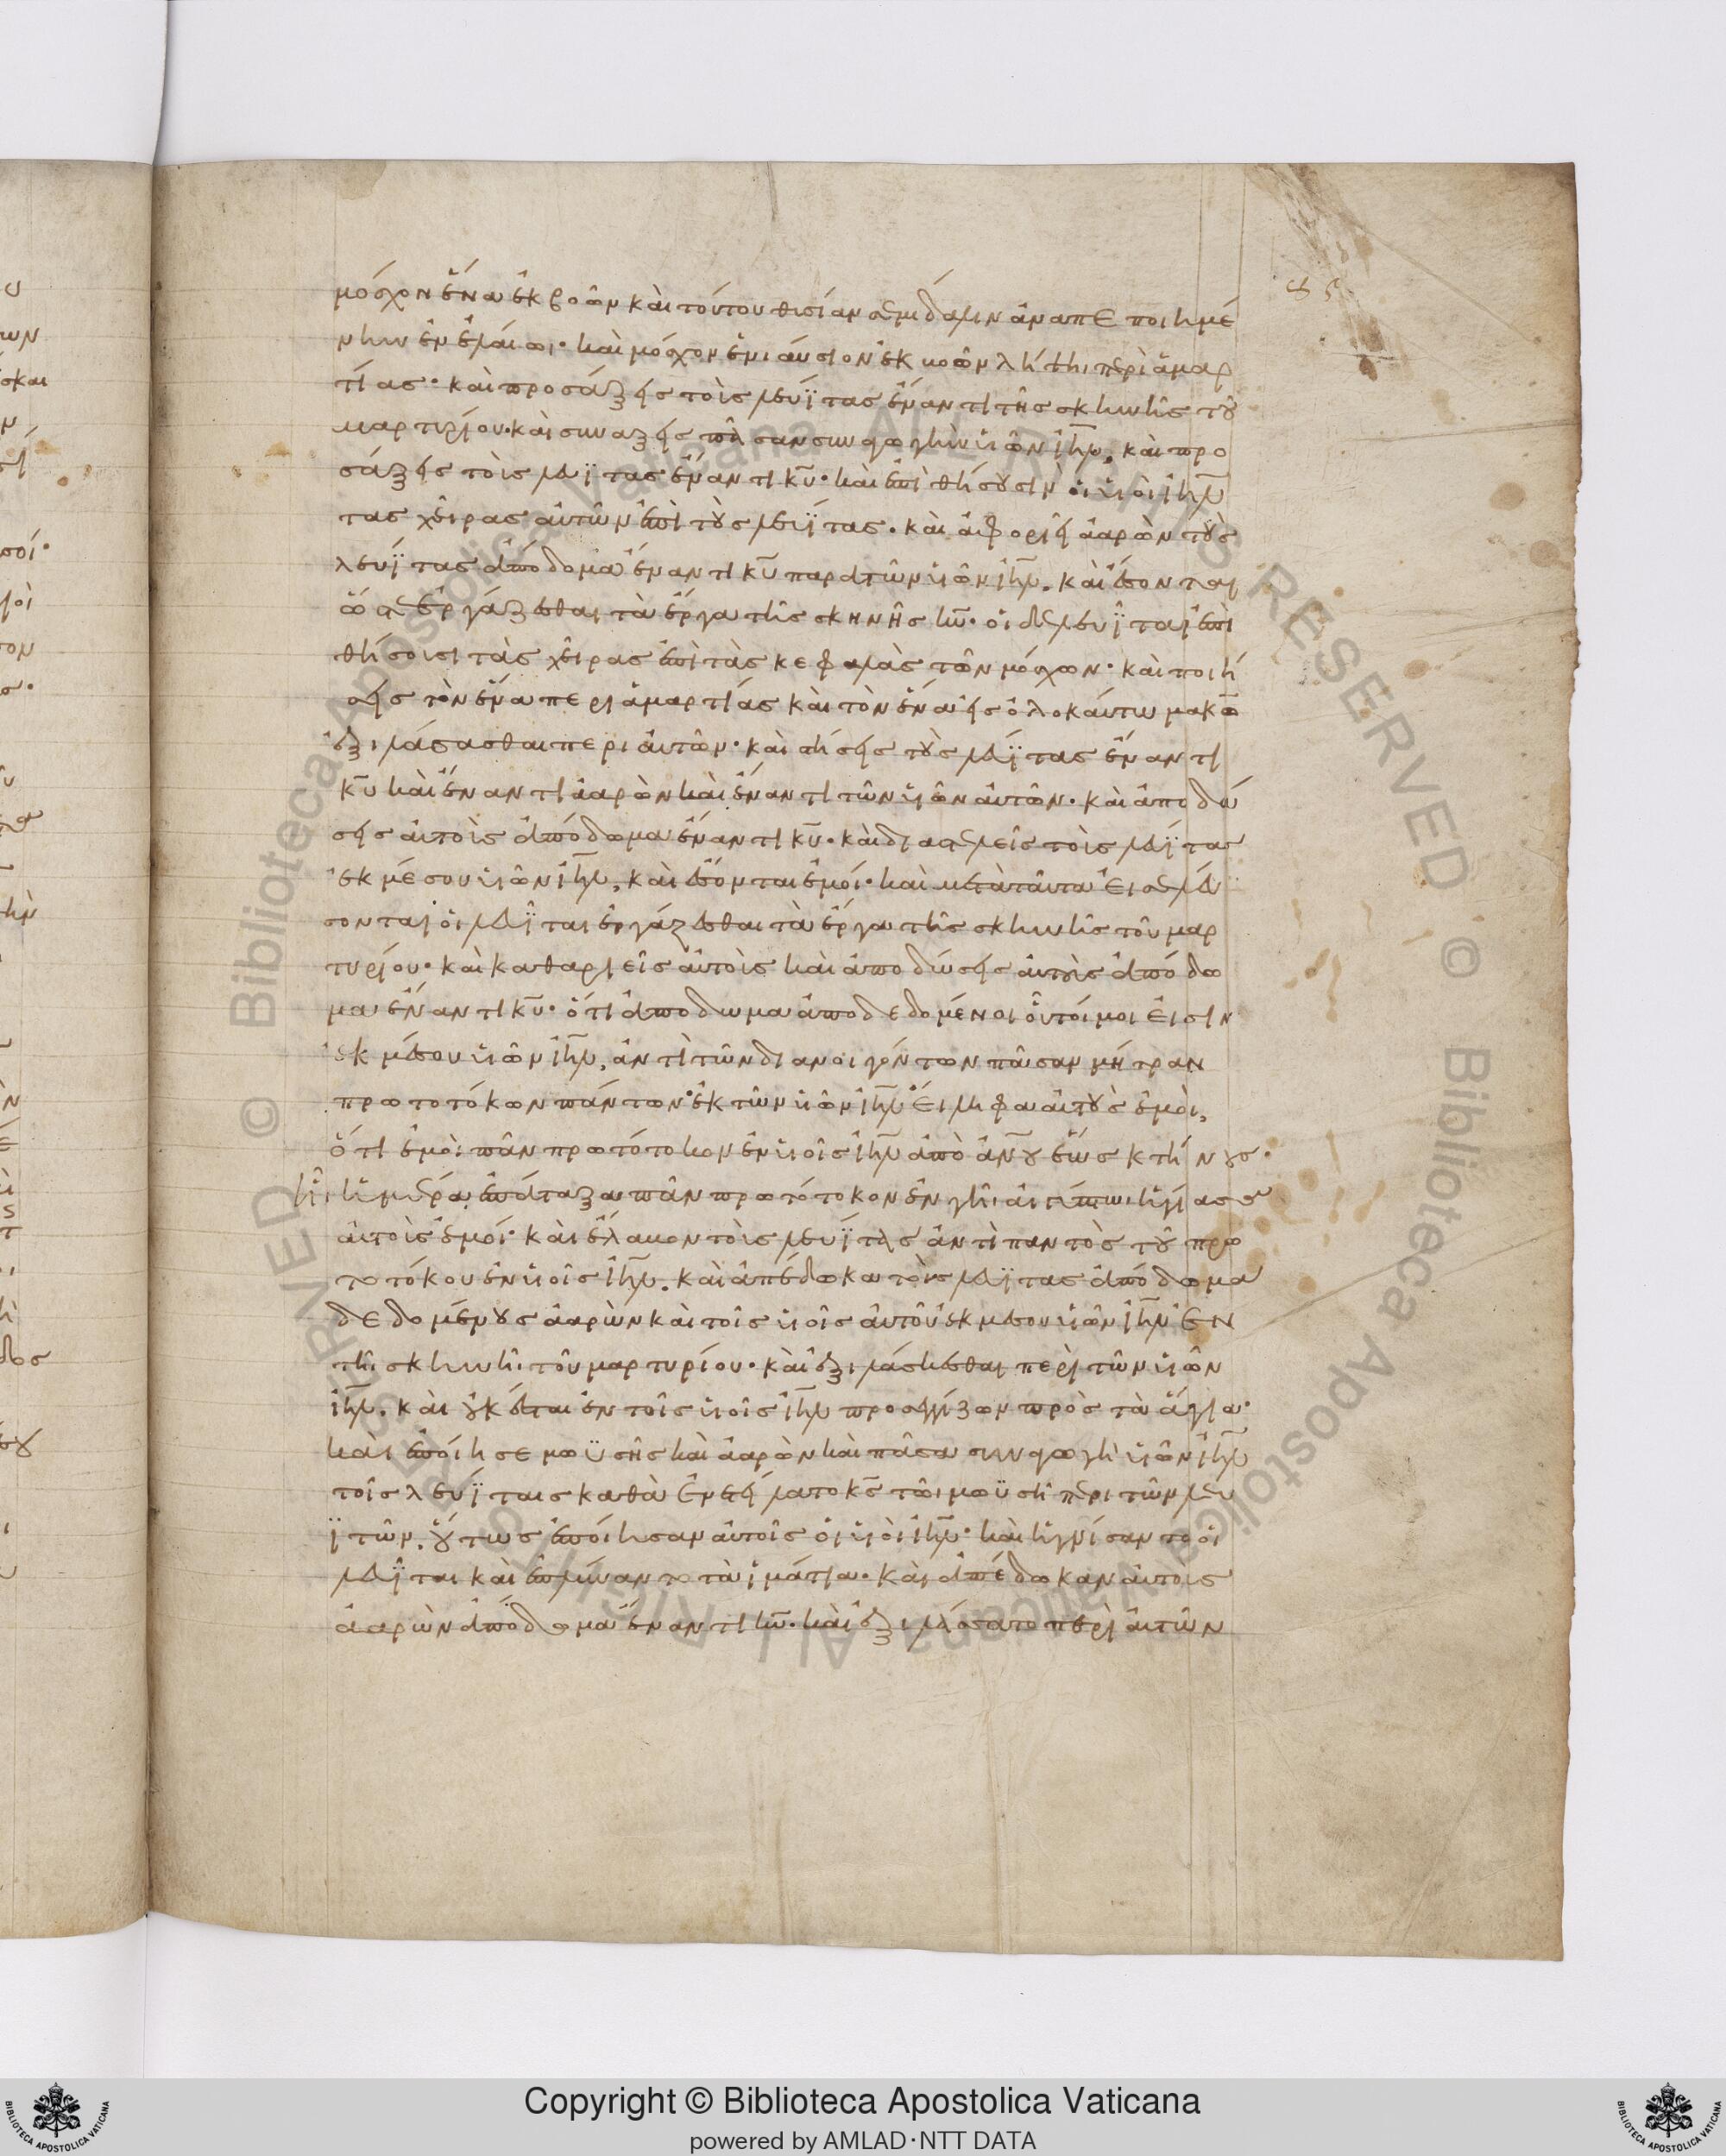 μόσχον ἕνα ἐκ βοῶν καὶ τούτου θισίαν σεμίδαλιν ἀναπεποιημέ
νην ἐν ἐλαίωι· καὶ μόσχον ἐνιαύσιον ἐκ βοῶν λήψηι περὶ ἁμαρ
τίας· καὶ προσάξεις τοὺς λευΐτας ἔναντι τῆς σκηνῆς τοῦ
μαρτυρίου· καὶ συναξεις πᾶσαν συναγωγὴν υἱῶν ἰηλ, καὶ προ
σάξεις τοὺς λευΐτας ἔναντι κυ· καὶ ἐπιθήσουσιν οἱ υἱοὶ ἰηλ
τας χεῖρας αὐτῶν ἐπὶ τοὺς λευΐτας· καὶ ἀφοριεῖ ἀαρὼν τοὺς
λευΐτας ἀπόδομα ἔναντι κυ παρα τῶν υἱῶν ἰηλ. καὶ ἔσονται
ὥστε ἐργάζεσθαι τὰ ἔργα τῆς σκηνῆς κυ· οἱ δὲ λευῖται ἐπι
θήσουσι τὰς χεῖρας ἐπὶ τὰς κεφαλὰς τῶν μόσχων· καὶ ποιή
σεις τὸν ἕνα περι ἁμαρτίας καὶ τὸν ἕνα εἰς ὁλοκαύτωμα κω
ἐξιλάσασθαι περι αὐτῶν· καὶ στήσεις τοὺς λευΐτας ἔναντι
κυ καὶ ἔναντι ἀαρὼν καὶ ἔναντι τῶν υἱῶν αὐτῶν· καὶ ἀποδώ
σεις αὐτοὺς ἀπόδωμα ἔναντι κυ· καὶ διαστελεῖς τοὺς λευΐτας
ἐκ μέσου υἱῶν ἰηλ, καὶ ἔσονται ἐμοί· καὶ μετὰ ταῦτα εἰσελεύ
σονται οἱ λευῖται ἐργάζεσθαι τὰ ἔργα τῆς σκηνῆς τοῦ μαρ
τυρίου· καὶ καθαριεῖς αὐτοὺς καὶ ἀποδώσεις αὐτοὺς ἀπόδω
μα ἔναντι κυ· ὅτι ἀποδωμα ἀποδεδομένοι οὗτοί μοι εἰσιν
ἐκ μέσου υἱῶν ἰηλ, ἀντὶ τῶν διανοιγόντων πᾶσαν μήτραν
πρωτοτόκων πάντων ἐκ τῶν υἱῶν ἰηλ εἴληφα αὐτοὺς ἐμοὶ,
ὅτι ἐμοὶ πᾶν πρωτότοκον ἐν υἱοῖς ἰηλ ἀπὸ ἀνου ἕως κτήνους·
ἧι ἡμέρα ἐπάταξα πᾶν πρωτότοκον ἐν γῆι αἰγύπτωι ἡγίασα
αὐτοὺς ἐμοί· καὶ ἔλαβον τοὺς λευΐτας ἀντὶ παντὸς τοῦ πρω
τοτόκου ἐν υἱοῖς ἰηλ. καὶ ἀπέδωκα τοὺς λευΐτας ἀπόδωμα
δεδομένους ἀαρὼν καὶ τοῖς υἱοῖς αὐτοῦ ἐκ μέσου υἱῶν ἰηλ ἐν
τῆι σκηνῆι τοῦ μαρτυρίου· καὶ ἐξιλάσκεσθαι περὶ τῶν υἱῶν
ἰηλ. καὶ οὐκ ἔσται ἐν τοῖς υἱοῖς ἰηλ προσεγγίζων πρὸς τὰ ἅγια·
καὶ ἐποίησε μωϋσῆς καὶ ἀαρὼν καὶ πᾶσα συναγωγὴ υἱῶν ἰηλ
τοῖς λευΐταις καθὰ ἐνετείλατο κς τῶι μωϋσῆ περι τῶν λευ
ϊτῶν. οὕτως ἐποίησαν αὐτοῖς οἱ υἱοὶ ἰηλ· καὶ ἡγνίσαντο οἱ
λευΐται καὶ ἐπλύναντο τὰ ἱμάτια· καὶ ἀπέδωκαν αὐτους
ἀαρὼν ἀπόδομα ἔναντι κυ· καὶ ἐξιλάσατο περὶ αὐτῶν
© Biblioteca Apostolica Vaticana ALL RIGHTS RESERVED © Biblioteca Apostolica Vaticana ALL RIGHTS RESERVED
Copyright © Biblioteca Apostolica Vaticana
powered by AMLAD·NTT DATA